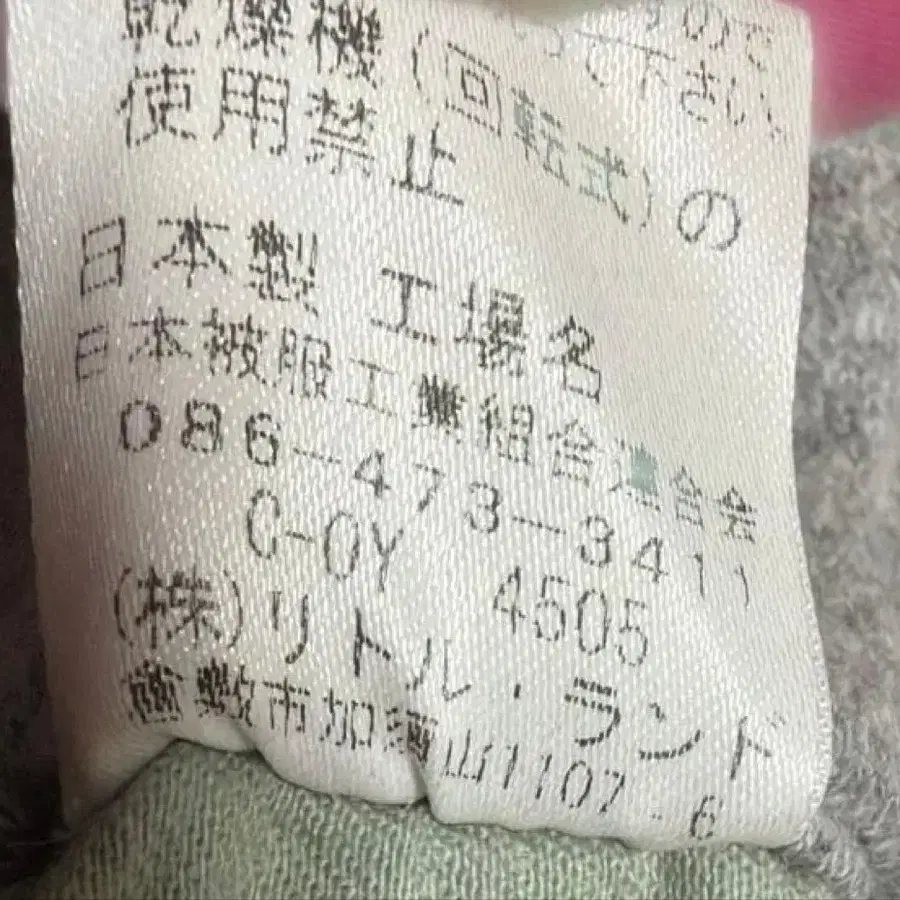 ので
して下さい
乾燥機(回転式)の
使用禁止
日本製 工場名
日本被服工業組合連合会
086-473-3411
C-OY 4505
(株)リトル・ランド
倉敷市加須山1107-6